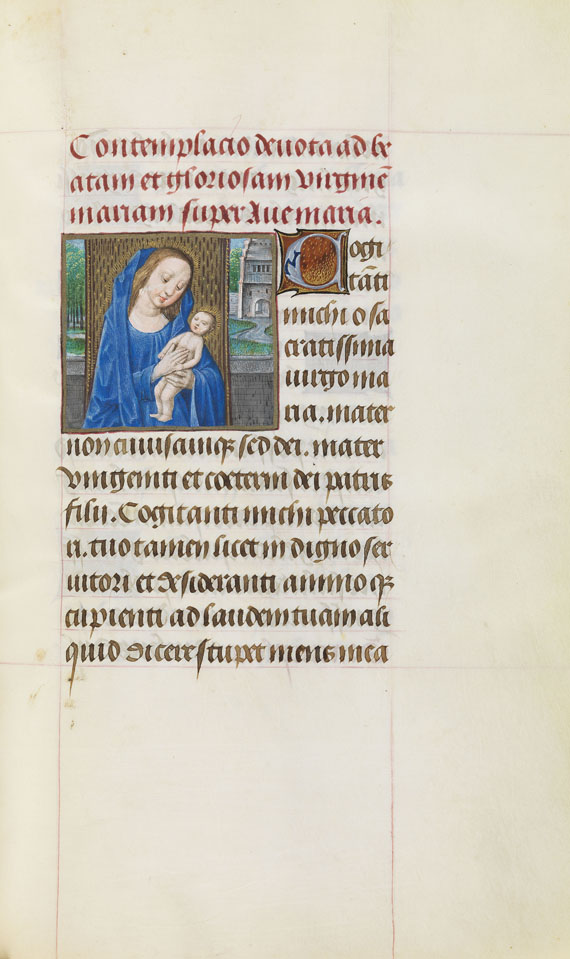 Contemplacio deuota ad be
atam et gloriosam virginē
mariam super Aue maria.
Cogi
tāti
michi o sa
cratissima
uirgo ma
ria. mater
non cuiuscumqꝫ sed dei. mater
vnigeniti et coeterni dei patris
filii. Cogitanti michi peccato
ri. tuo tamen licet in digno ser
uitori et desideranti animo qꝫ
cupienti ad laudem tuam ali
quid dicere stupet mens mea